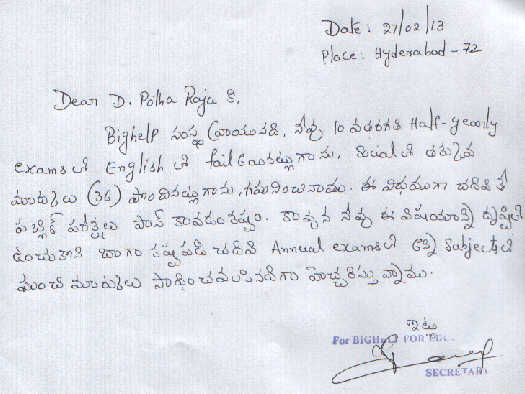 Date: 27/02/13
Place: Hyderabad - 72
Dear D. Potha Raju k.
Bighelp సంస్థ వ్రాయునది, నీవు 10 వతరగతి Half-yearly
exams లో English లో fail అయినట్లుగాను, లో తక్కువ
మార్కులు (35) పొందినట్లుగాను, గమనించినాము. ఈ విధముగా చదివితే
పబ్లిక్ పరీక్షల్లో పాస్ కావడంకష్టం. కావున నీవు ఈ విషయాన్ని దృష్టిలో
ఉంచుకొని బాగా కష్టపడి చదివి Annual exams లో అన్ని Subjects లో
మంచి మార్కులు సాధించవలసినదిగా హెచ్చరిస్తున్నాము.
ఇట్లు
For BIGHELP FOR
SECRETARY